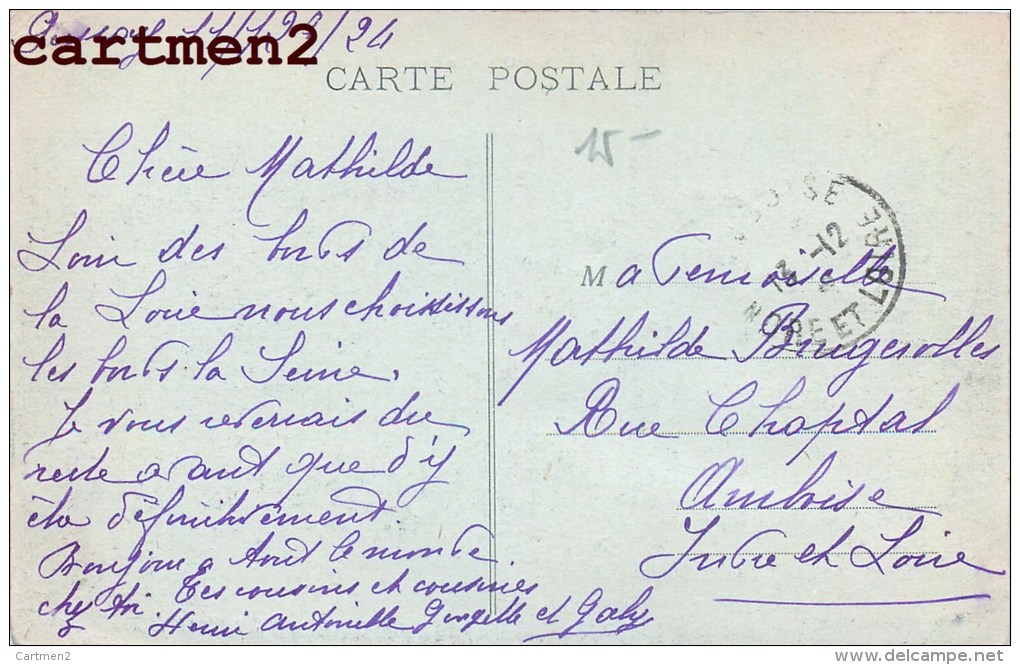 cartmen2
/24
CARTE POSTALE
15-
Chère Mathilde
Loin des bords de
la Loire nous choisissons
les bords la Seine.
Je vous reverrais du
reste avant que d'y
être définitivement.
Bonjour a tout le monde
chez toi. Tes cousins et cousines
Henri Antoinette et Gaby
AMBOISE
13 -12
INDRE ET LOIRE
Mademoiselle
Mathilde Brugerolles
Rue Chaptal
Amboise
Indre et Loire
Cartmen2
www.delcampe.net